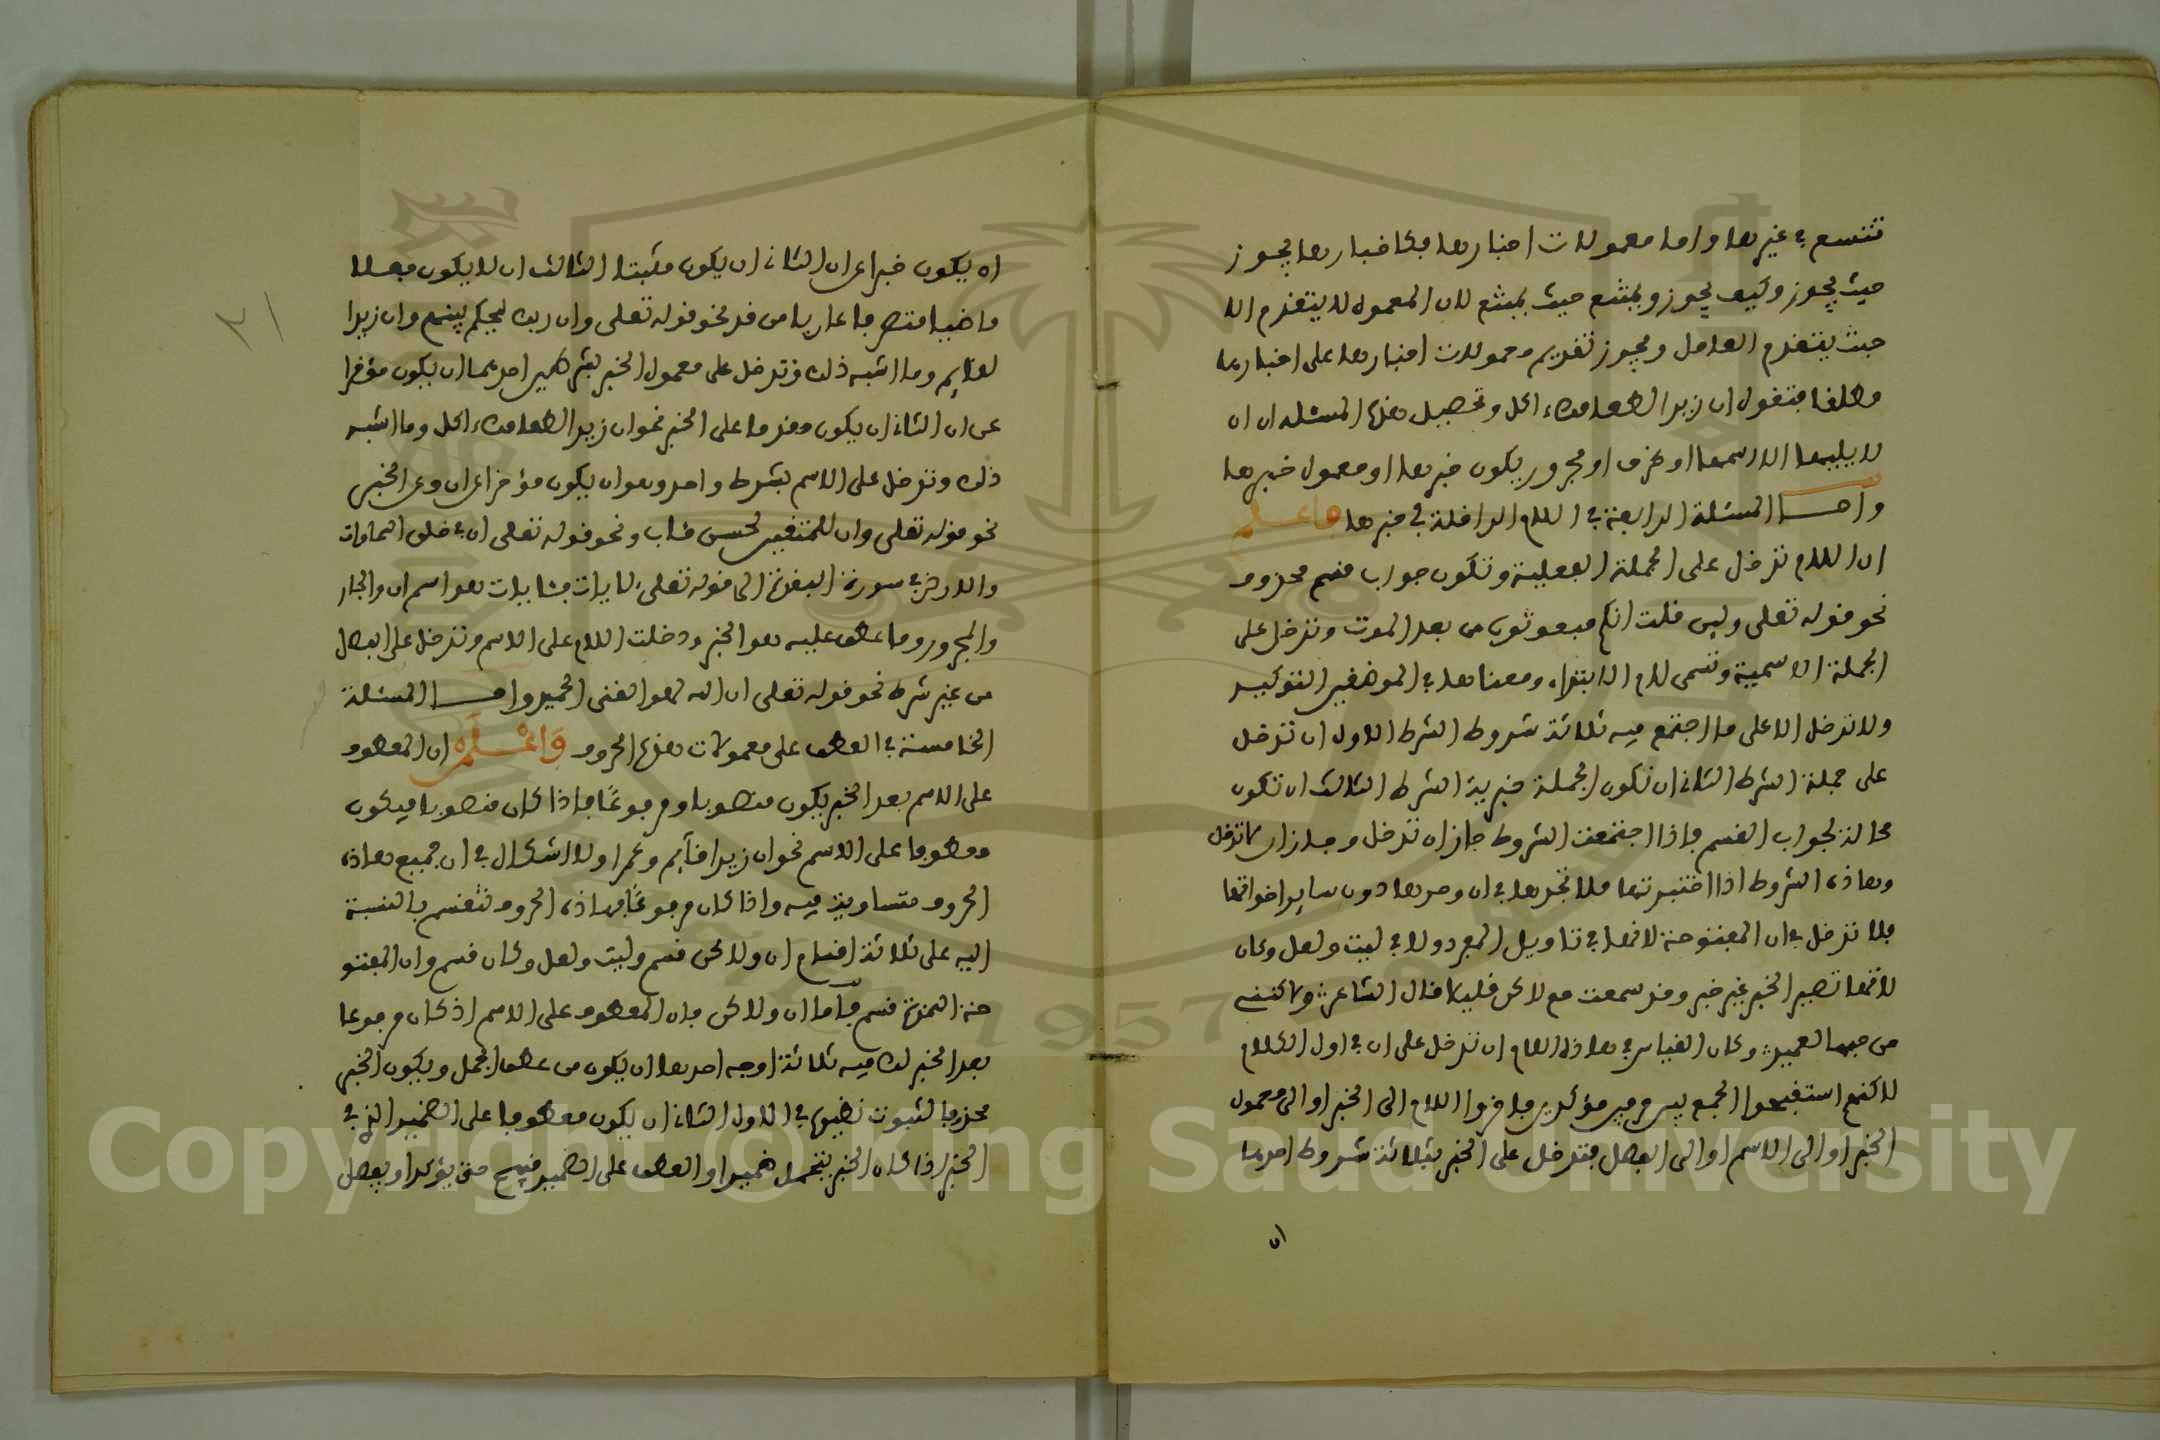 تتسع في غيرها واما معمولات اخبارها فكاخبارها يجوز
حيث يجوز وكيف يجوز ويمتنع حيث يمتنع لان المعمول لا يتقدم الا
حيث يتقدم العامل ويجوز تقديم معمولات اخبارها على اخبارها
مطلقا فتقول ان زيدا الطعامك ءاكل وتحصيل هذه المسئله ان ان
لا يليها الا اسمها او ظرف او مجرور يكون خبرها او معمول خبرها
واما المسئلة الرابعة في اللام الداخلة في خبرها فاعلم
ان اللام تدخل على الجملة الفعلية وتكون جواب قسم محذوف
نحو قوله تعلى ولين قلت انكم مبعوثون من بعد الموت وتدخل على
الجملة الاسمية وتسمى لام الابتداء ومعناها في الموضعين التوكيد
ولا تدخل الا على ما اجتمع فيه ثلاثة شروط الشرط الاول ان تدخل
على جملة الشرط الثاني ان تكون الجملة خبرية الشرط الثالث ان تكون
محالة لجواب القسم فاذا اجتمعت الشروط جاز ان تدخل وجاز ان لا تدخل
وهاذه الشروط اذا اختبرتها فلا تجدها في ان وحدها دون ساير اخواتها
فلا تدخل في ان المفتوحة لانها في تاويل المفرد ولا في ليت ولعل وكان
لانها تصير الخبر غير خبر وقد سمعت مع لاكن قليلا قال الشاعر ولاكنني
من حبها لعميد وكان القياس في هاذه اللام ان تدخل على ان في اول الكلام
لاكنهم استقبحوا الجمع بين حرفين مؤكدين فاخروا اللام الى الخبر او الى معمول
الخبر او الى الاسم او الى الفصل فتدخل على الخبر بثلاثة شروط احدها
ان
ان يكون خبرا عن ان الثاني ان يكون مثبتا الثالث ان لا يكون فعلا
ماضيا متصرفا عاريا من قد نحو قوله تعلى وان ربك ليحكم بينهم وان زيدا
لقايم وما اشبه ذلك وتدخل على معمول الخبر بشرطين احدهما ان يكون مؤخرا
عن ان الثاني ان يكون مقدما على الخبر نحو ان زيدا لطعامك ءاكل وما اشبه
ذلك وتدخل على الاسم بشرط واحد وهو ان يكون مؤخرا عن ان وعن الخبر
نحو قوله تعلى وان للمتقين لحسن مئاب ونحو قوله تعلى ان في خلق السماوات
والارض في سورة البقرة الى قوله تعلى لايات فئايات هو اسم ان والجار
والمجرور وما عطف عليه هو الخبر ودخلت اللام على الاسم وتدخل على الفصل
من غير شرط نحو قوله تعلى ان الله لهو الغني الحميد واما المسئلة
الخامسة في العطف على معمولات هذه الحروف واعلم ان المعطوف
على الاسم بعد الخبر يكون منصوبا ومرفوعا فاذا كان منصوبا فيكون
معطوفا على الاسم نحو ان زيدا قآيم وعمرا ولا اشكال في ان جميع هاذه
الحروف متساوية فيه واذا كان مرفوعا فهاذه الحروف تنقسم بالنسبة
اليه على ثلاثة اقسام ان ولاكن قسم وليت ولعل وكان قسم وان المفتو
حة الهمزة قسم فاما ان ولاكن فان المعطوف على الاسم اذ كان مرفوعا
بعد الخبر لك فيه ثلاثة اوجه احدها ان يكون من عطف الجمل ويكون الخبر
محذوفا لثبوت نظيره في الاول الثاني ان يكون معطوفا على الضمير الذي في
الخبر اذا كان الخبر يتحمل ضميرا والعطف على الضمير قبيح حتى يؤكد او يفصل
٢١
Copyright © King Saud University
1957